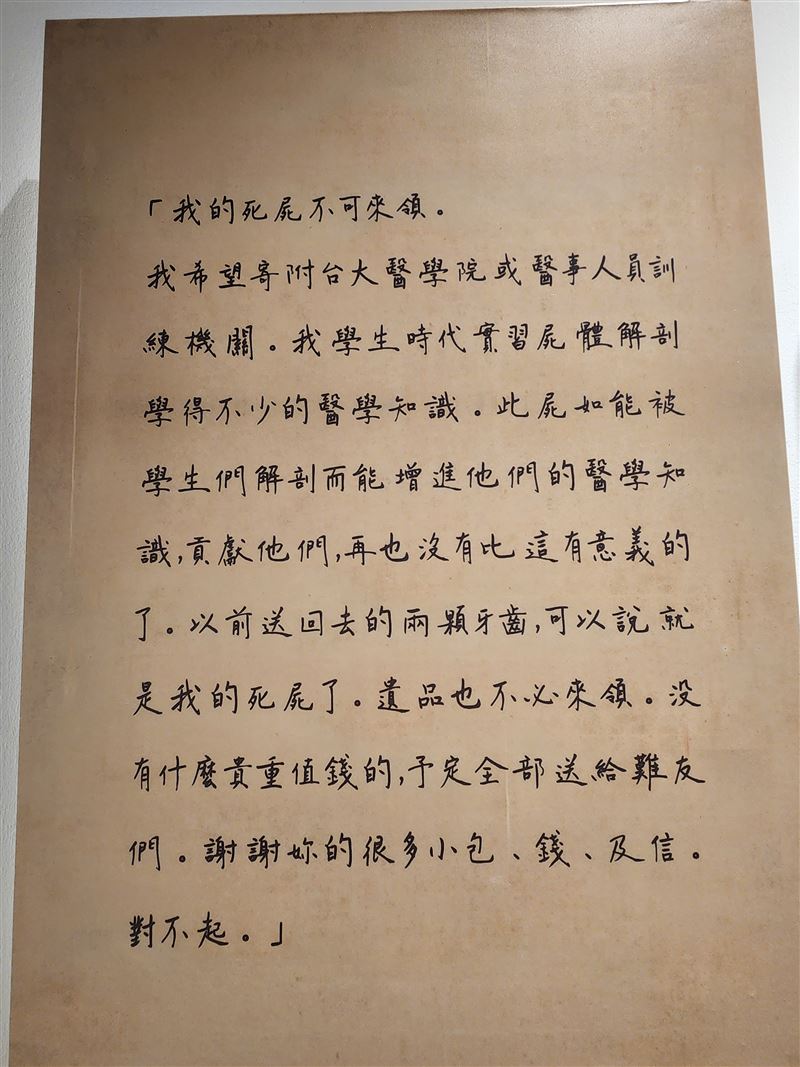 「我的死屍不可來領。
我希望寄附台大醫學院或醫事人員訓
練機關。我學生時代實習屍體解剖
學得不少的醫學知識。此屍如能被
學生們解剖而能增進他們的醫學知
識,貢獻他們,再也沒有比這有意義的
了。以前送回去的兩顆牙齒,可以說就
是我的死屍了。遺品也不必來領。没
有什麼貴重值錢的,予定全部送給難友
們。謝謝妳的很多小包、錢、及信。
對不起。」